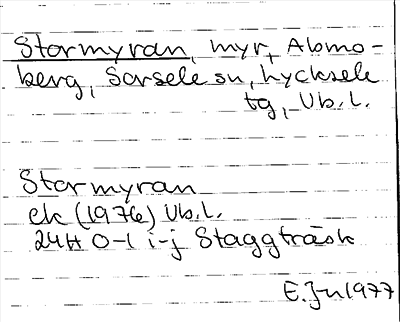 Stormyran, myr, Abmo-
berg, Sorsele sn, Lycksele
tg, Vb.l.
Stormyran
ek (1976) Vb.l.
24H 0-1 i-j Staggträsk
E.Jn 1977